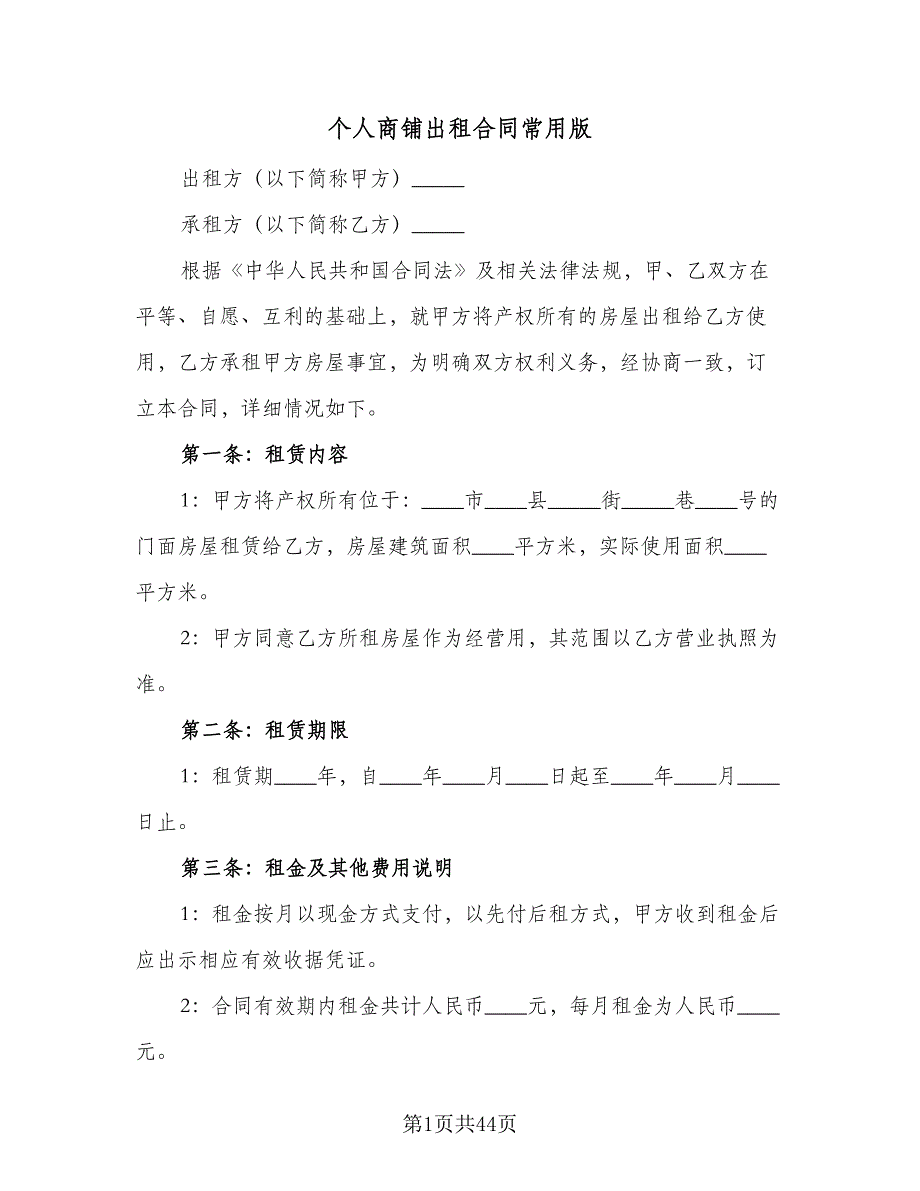 个人商铺出租合同常用版
出租方（以下简称甲方）_____
承租方（以下简称乙方）_____
根据《中华人民共和国合同法》及相关法律法规，甲、乙双方在
平等、自愿、互利的基础上，就甲方将产权所有的房屋出租给乙方使
用，乙方承租甲方房屋事宜，为明确双方权利义务，经协商一致，订
立本合同，详细情况如下。
第一条：租赁内容
1：甲方将产权所有位于：____市____县_____街_____巷____号的
门面房屋租赁给乙方，房屋建筑面积____平方米，实际使用面积____
平方米。
2：甲方同意乙方所租房屋作为经营用，其范围以乙方营业执照为
准。
第二条：租赁期限
1：租赁期____年，自____年____月____日起至____年____月____
日止。
第三条：租金及其他费用说明
1：租金按月以现金方式支付，以先付后租方式，甲方收到租金后
应出示相应有效收据凭证。
2：合同有效期内租金共计人民币____元，每月租金为人民币____
元。
第1页共44页